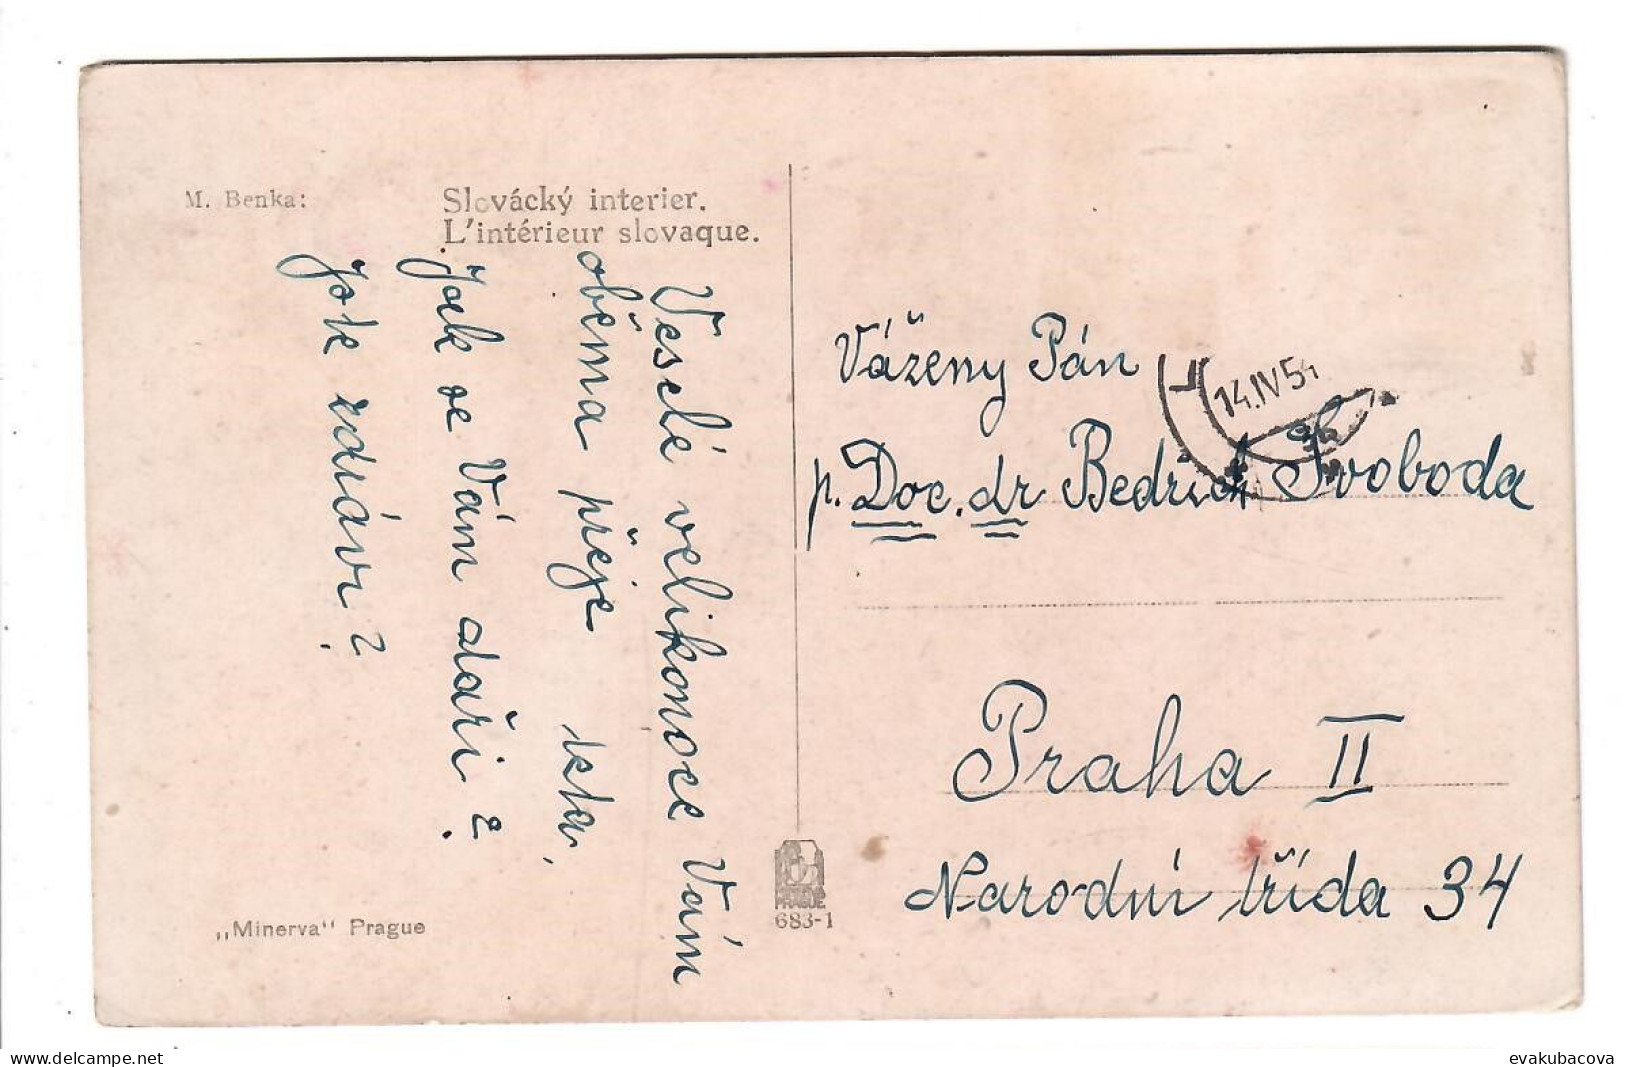 M. Benka:
Slovácký interier.
L'intérieur slovaque.
Veselé velikonoce Vám
oběma přeje
Jak se Vám daři?
Jste zdrávi?
Vážený Pán
p. Doc. dr Bedřich Svoboda
Praha II
Narodní třída 34
14.IV.5
„Minerva" Prague
PRAGUE
683-1
evakubacova